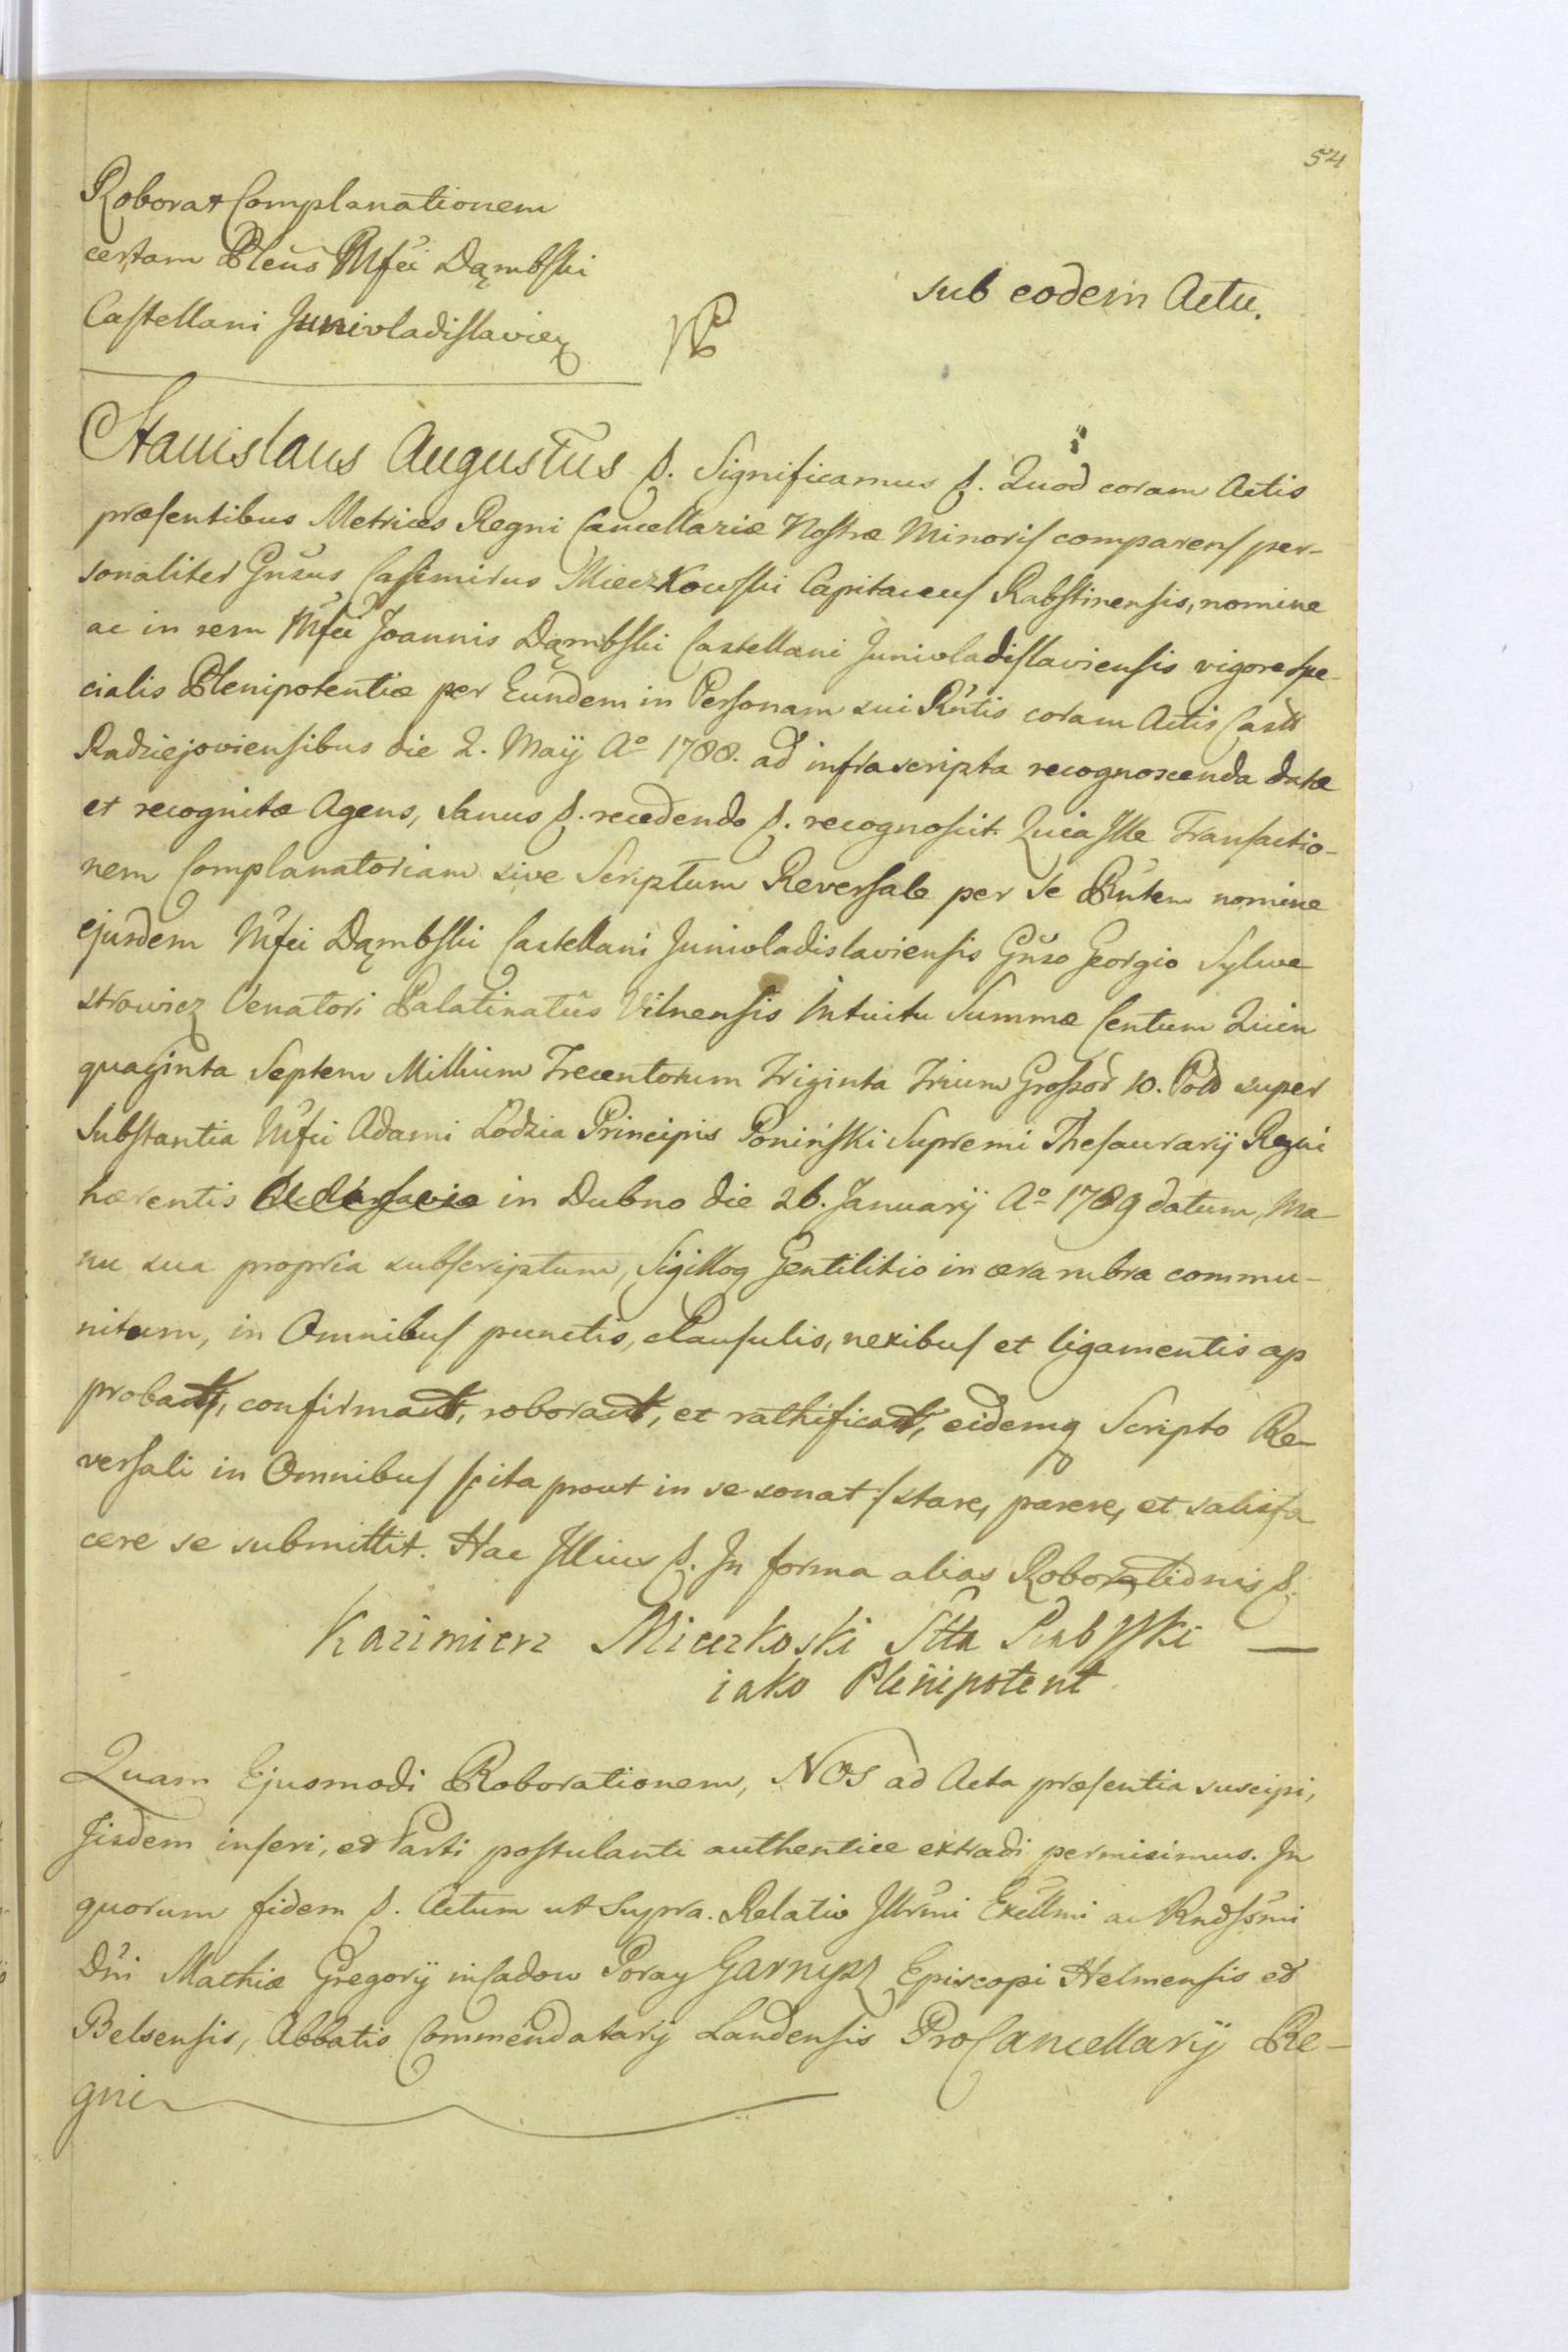 54
Roborat Complanationem
certam Plenus Mfci Dąmbski
Castellani Junivladislavien
sub eodem Actu.
Stanislaus Augustus p. Significamus p. Quod coram Actis
præsentibus Metrices Regni Cancellariæ Nostræ Minoris comparens per-
sonaliter Gnsus Casimirus Mieczkowski Capitaneus Rabstinensis, nomine
ac in rem Mfci Joannis Dąmbski Castellani Junivladislaviensis vigore spe-
cialis Plenipotentiæ per Eundem in Personam sui Rntis coram Actis Castr
Radziejoviensibus die 2. Maÿ Ao 1788. ad infrascripta recognoscenda datæ
et recognitæ Agens, Sanus p. recedendo p. recognoscit. Quia Ille Transactio-
nem Complanatoriam sive Scriptum Reversale per se Rntem nomine
ejusdem Mfci Dąmbski Castellani Junivladislaviensis Gnso Georgio Sylwe
strowicz Venatori Palatinatûs Vilnensis Intuitu Summæ Centum Quin
quaginta Septem Millium Trecentorum Triginta Trium Grossor 10. Pold super
Substantia Mfci Adami Łodzia Principis Poniński Supremi Thesaurarÿ Regni
hærentis in Dubno die 26. Januarÿ Ao 1789 datum, Ma-
nu sua propria subscriptum, Sigilloq Gentilitio in cera rubra commu-
nitum, in Omnibus punctis, clausulis, nexibus et ligamentis ap
probat, confirmat, roborat, et rathificat, eidemq Scripto Re-
versali in Omnibus /: ita prout in se sonat :/ stare, parere, et satisfa
cere se submittit. Hac Illius p. In forma alias Roborationis p.
Kazimierz Mieczkoski Stta Rabsski —
iako Plenipotent
Quam Ejusmodi Roborationem, NOS ad Acta præsentia suscipi,
Iisdem inseri, et Parti postulanti authentice extradi permisimus. In
quorum fidem p. Actum ut Supra. Relatio Illrmi Excllmi ac Rndssmi
Dni Mathiæ Gregorÿ in Cadow Poray Garnysz Episcopi Helmensis et
Belsensis, Abbatis Commendatarÿ Landensis ProCancellarÿ Re-
gni